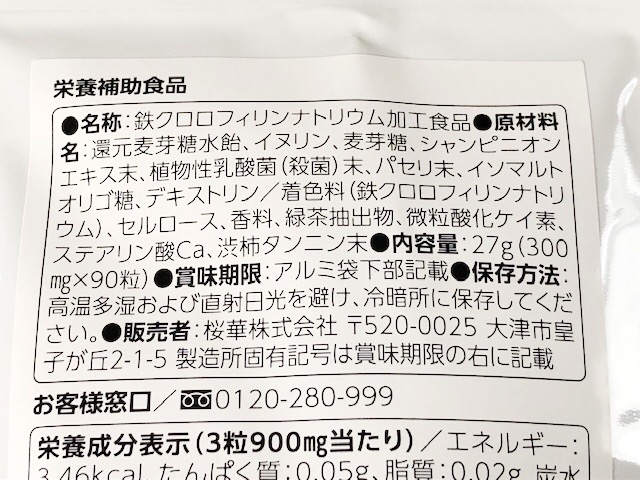 栄養補助食品
●名称:鉄クロロフィリンナトリウム加工食品●原材料
名:還元麦芽糖水飴、イヌリン、麦芽糖、シャンピニオン
エキス末、植物性乳酸菌(殺菌)末、パセリ末、イソマルト
オリゴ糖、デキストリン/着色料(鉄クロロフィリンナトリ
ウム)、セルロース、香料、緑茶抽出物、微粒酸化ケイ素、
ステアリン酸Ca、渋柿タンニン末●内容量:27g(300
mg×90粒)●賞味期限:アルミ袋下部記載●保存方法:
高温多湿および直射日光を避け、冷暗所に保存してくだ
さい。●販売者:桜華株式会社 〒520-0025 大津市皇
子が丘2-1-5 製造所固有記号は賞味期限の右に記載
お客様窓口/0120-280-999
栄養成分表示(3粒900mg当たり)/エネルギー:
3.46kcal、たんぱく質:0.05g、脂質:0.02g、炭水